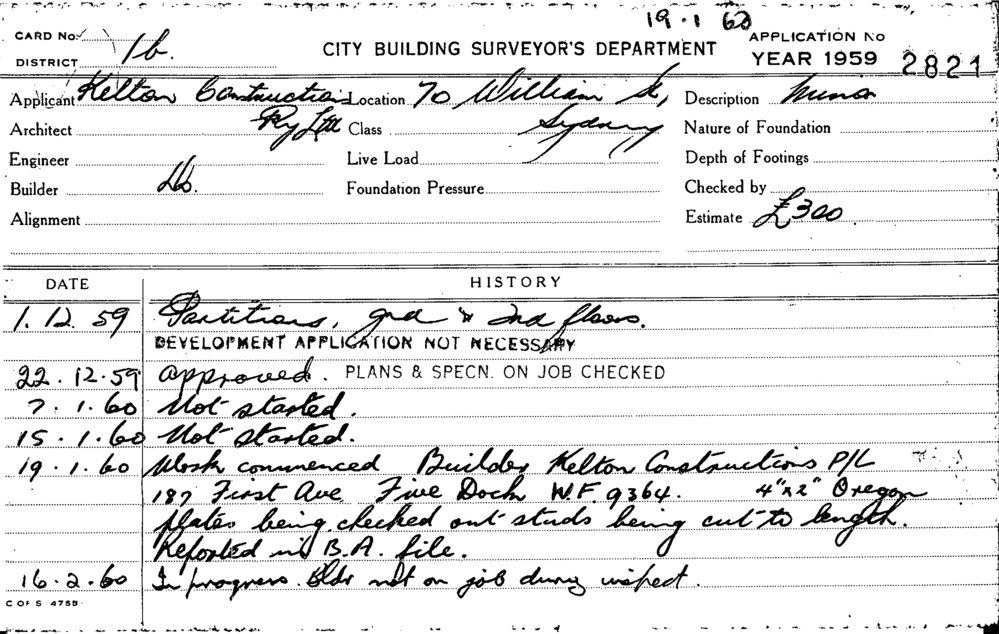 19.1.60
CARD No.
DISTRICT 1b.
CITY BUILDING SURVEYOR'S DEPARTMENT
APPLICATION No
YEAR 1959 2821
Applicant Kelton Constructions Location 70 William St, Description Minor
Architect Pty Ltd Class Sydney Nature of Foundation
Engineer Live Load Depth of Footings
Builder Do. Foundation Pressure Checked by
Alignment Estimate £300
DATE HISTORY
1.12.59 Partitions, grd & 2nd floors.
DEVELOPMENT APPLICATION NOT NECESSARY
22.12.59 Approved. PLANS & SPECN. ON JOB CHECKED
7.1.60 Not started.
15.1.60 Not started.
19.1.60 Work commenced Builder Kelton Constructions P/L
187 First Ave Five Dock W.F. 9364. 4"x2" Oregon
plates being checked out studs being cut to length.
Reported in B.A. file.
16.2.60 In progress. Bldr not on job during inspect.
C OF S 4759